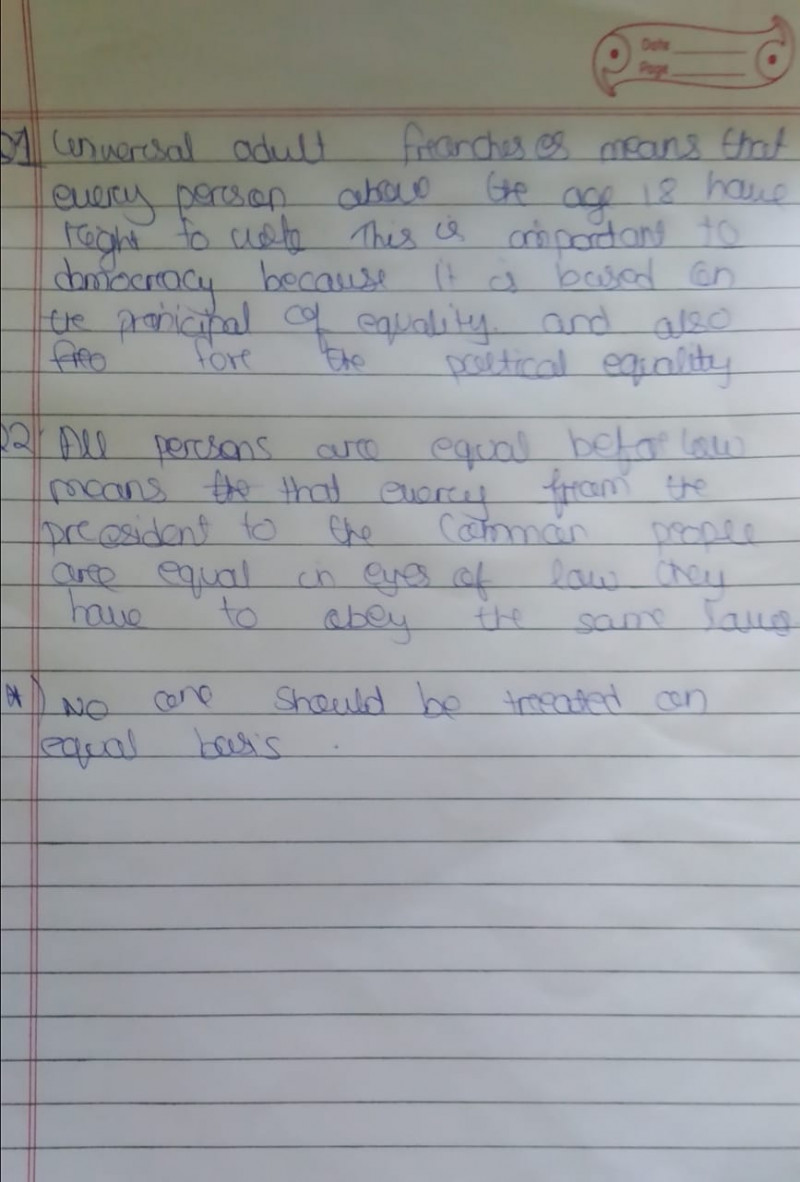 Date
Page
Q1 Universal adult franches es means that
every person above the age 18 have
right to vote This is important to
democracy because it is based on
the pranicipal of equality. and also
free fore the political equality
Q2 All persons are equal before law
means the that every from the
president to the common people
are equal in eyes of law they
have to obey the same laws
* NO one should be treated on
equal basis.